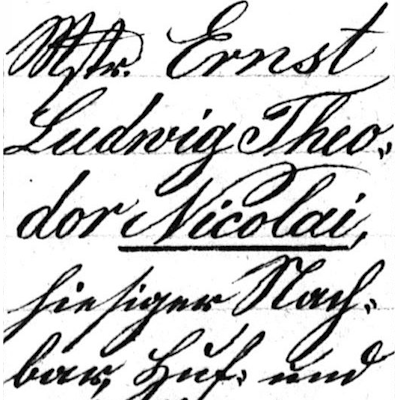 Mstr. Ernst
Ludwig Theo-
dor Nicolai,
hiesiger Nach-
bar, Huf- und